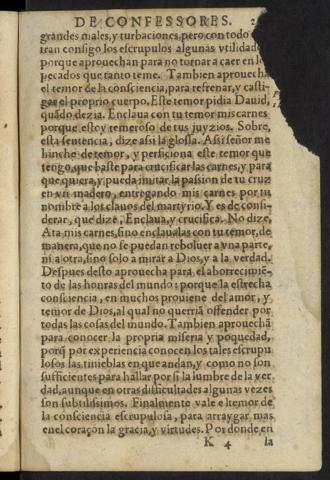 DE CONFESSORES. 2
grandes males, y turbaciones, pero con todo
tran consigo los escrupulos algunas vtilidad
porque aprouechan para no tornar a caer en lo
pecados que tanto teme. Tambien aprouecha
el temor de la consciencia, para refrenar, y casti-
gar el proprio cuerpo. Este temor pidia Dauid,
quãdo dezia. Enclaua con tu temor mis carnes
porque estoy temeroso de tus juyzios. Sobre,
esta sentencia, dize assi la glossa. Assi señor me
hinche de temor, y perficiona este temor que
tengo, que baste para crucificar las carnes, y para
que quiera, y pueda imitar la passion de tu cruz
en vn madero, entregando mis carnes por tu
nombre a los clauos del martyrio. Y es de consi-
derar, que dize, Enclaua, y crucifica. No dize,
Ata mis carnes, sino enclaualas con tu temor, de
manera, que no se puedan reboluer a vna parte,
ni a otra, sino solo a mirar a Dios, y a la verdad.
Despues desto aprouecha para el aborrecimiẽ-
to de las honras del mundo: porque la estrecha
consciencia, en muchos prouiene del amor, y
temor de Dios, al qual no querriã offender por
todas las cosas del mundo. Tambien aprouechã
para conocer la propria miseria y poquedad,
porq̃ por experiencia conocen los tales escrupu
losos las tinieblas en que andan, y como no son
sufficientes para hallar por si la lumbre de la ver
dad, aunque en otras difficultades algunas vezes
son subtilissimos. Finalmente vale el temor de
la consciencia escrupulosa, para arraygar mas
en el coraçon la gracia, y virtudes. Por donde en
K 4 la